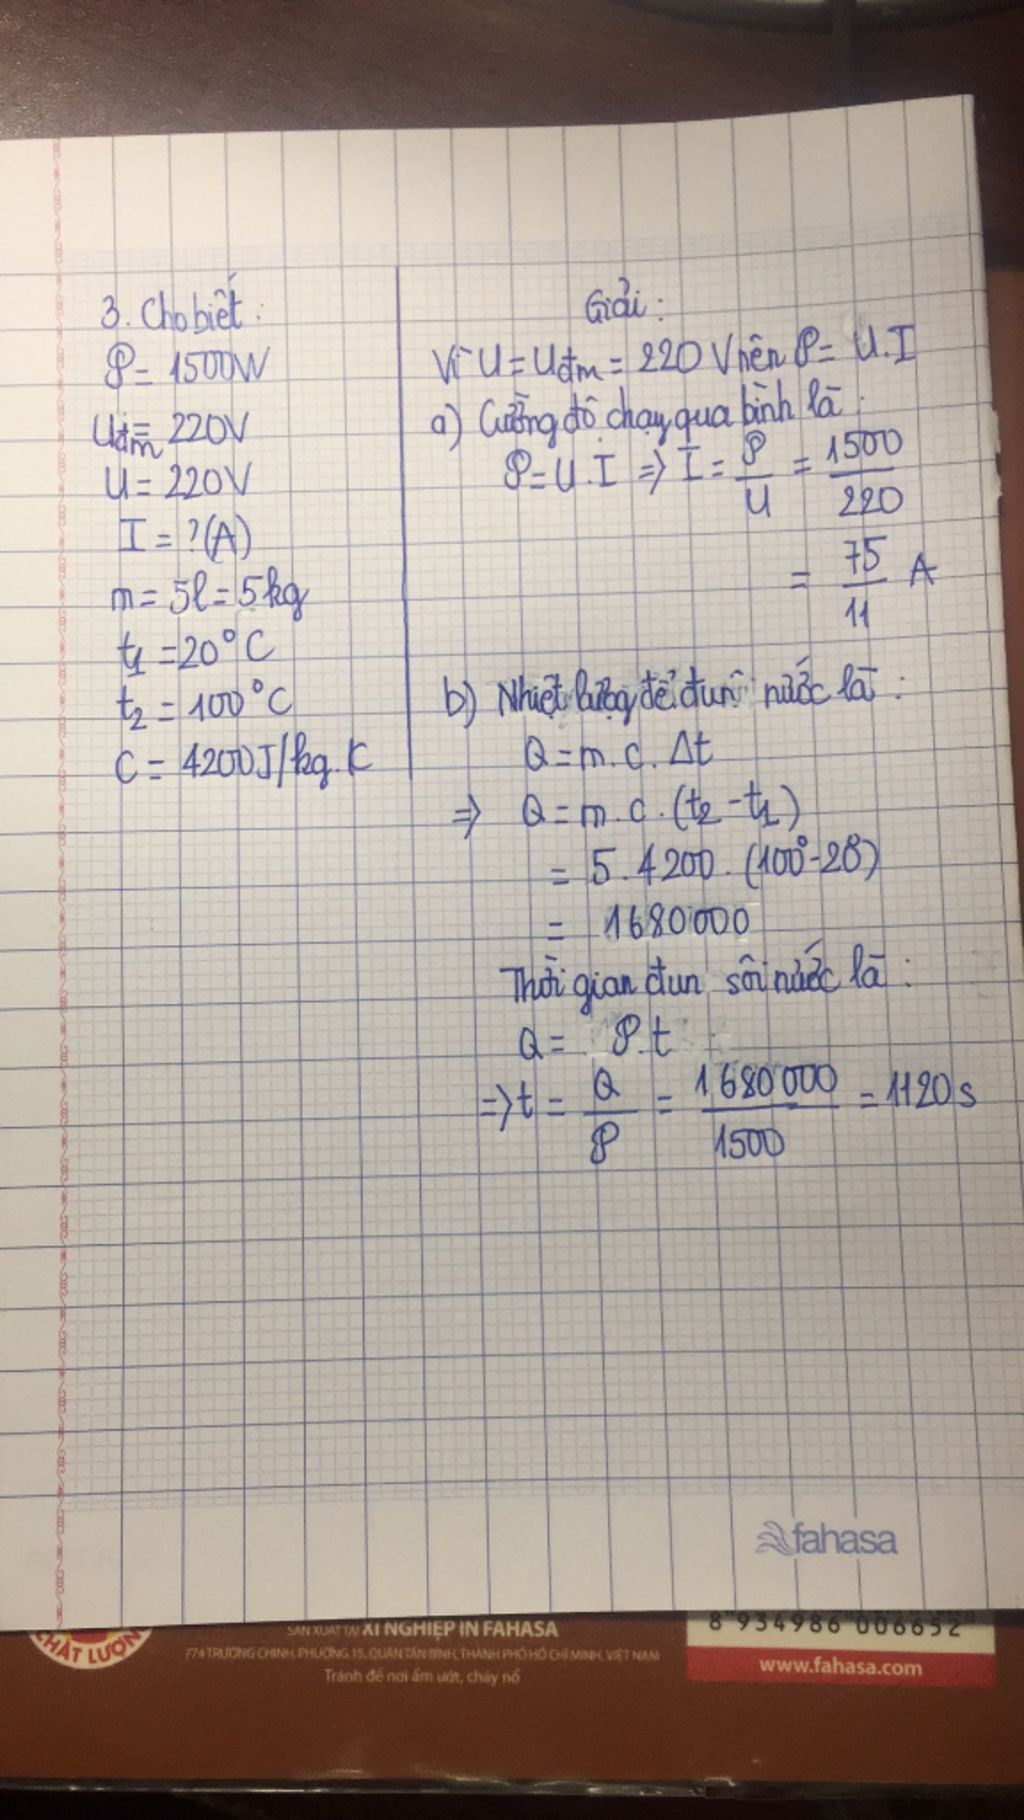 3. Cho biết :
P = 1500W
Uđm = 220V
U = 220V
I = ?(A)
m = 5l = 5kg
t1 = 20°C
t2 = 100°C
C = 4200J/kg.K
Giải :
Vì U = Uđm = 220V nên P = U.I
a) Cường độ chạy qua bình là :
P = U.I => I = P/U = 1500/220
= 75/11 A
b) Nhiệt lượng để đun nước là :
Q = m.c.Δt
=> Q = m.c.(t2 - t1)
= 5.4200.(100° - 20°)
= 1680000
Thời gian đun sôi nước là :
Q = P.t
=> t = Q/P = 1680000/1500 = 1120s
fahasa
CHẤT LƯỢN
SẢN XUẤT TẠI XÍ NGHIỆP IN FAHASA
774 TRƯỜNG CHINH, PHƯỜNG 15, QUẬN TÂN BÌNH, THÀNH PHỐ HỒ CHÍ MINH, VIỆT NAM
Tránh để nơi ẩm ướt, cháy nổ
8 934986 006652
www.fahasa.com